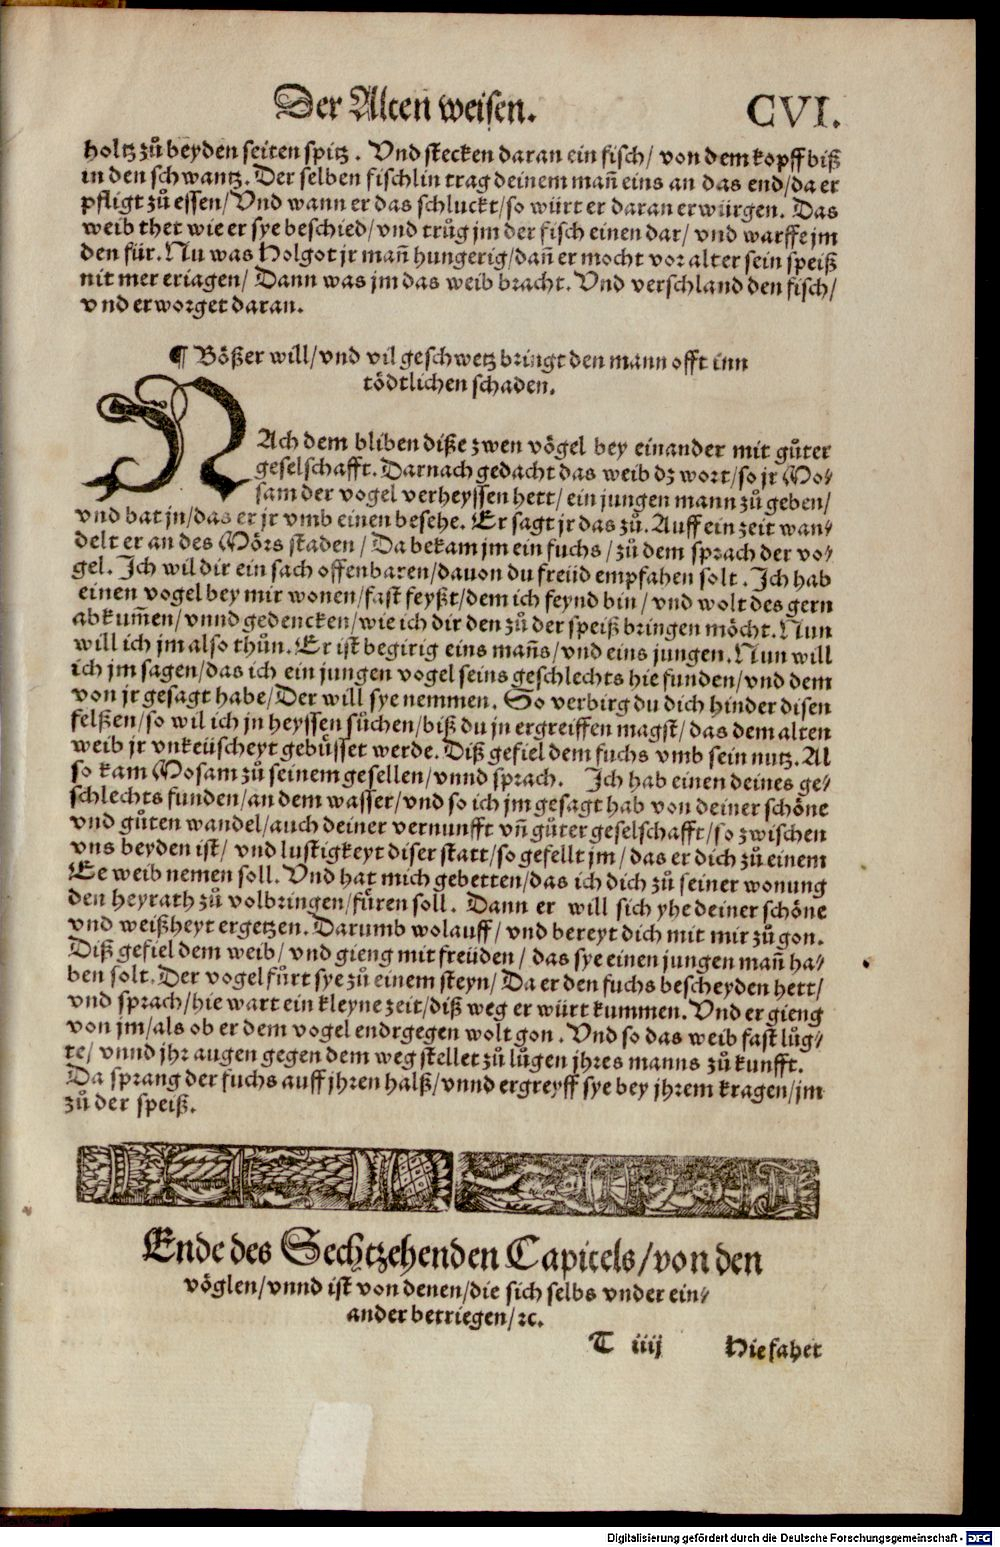 Der Alten weisen. CVI.
holtz zů beyden seiten spitz. Vnd stecken daran ein fisch/ von dem kopff biß
in den schwantz. Der selben fischlin trag deinem mañ eins an das end/ da er
pfligt zů essen/ Vnd wann er das schluckt/ so würt er daran erwürgen. Das
weib thet wie er sye beschied/ vnd trůg jm der fisch einen dar/ vnd warffe jm
den für. Nu was Holgot jr mañ hungerig/ dañ er mocht vor alter sein speiß
nit mer eriagen/ Dann was jm das weib bracht. Vnd verschland den fisch/
vnd erworget daran.
¶ Bößer will/ vnd vil geschwetz bringt den mann offt inn
tödtlichen schaden.
NAch dem bliben diße zwen vögel bey einander mit gůter
geselschafft. Darnach gedacht das weib dz wort/ so jr Mo⸗
sam der vogel verheyssen hett/ ein jungen mann zů geben/
vnd bat jn/ das er jr vmb einen besehe. Er sagt jr das zů. Auff ein zeit wan⸗
delt er an des Mörs staden/ Da bekam jm ein fuchs/ zů dem sprach der vo⸗
gel. Ich wil dir ein sach offenbaren/ dauon du freüd empfahen solt. Ich hab
einen vogel bey mir wonen/ fast feyßt/ dem ich feynd bin/ vnd wolt des gern
abkum̃en/ vnnd gedencken/ wie ich dir den zů der speiß bringen möcht. Nun
will ich jm also thůn. Er ist begirig eins mañs/ vnd eins jungen. Nun will
ich jm sagen/ das ich ein jungen vogel seins geschlechts hie funden/ vnd dem
von jr gesagt habe/ Der will sye nemmen. So verbirg du dich hinder disen
felßen/ so wil ich jn heyssen sůchen/ biß du jn ergreiffen magst/ das dem alten
weib jr vnkeüscheyt gebüsset werde. Diß gefiel dem fuchs vmb sein nutz. Al
so kam Mosam zů seinem gesellen/ vnnd sprach. Ich hab einen deines ge⸗
schlechts funden/ an dem wasser/ vnd so ich jm gesagt hab von deiner schöne
vnd gůten wandel/ auch deiner vernunfft vñ gůter geselschafft/ so zwischen
vns beyden ist/ vnd lustigkeyt diser statt/ so gefellt jm/ das er dich zů einem
Ee weib nemen soll. Vnd hat mich gebetten/ das ich dich zů seiner wonung
den heyrath zů volbringen/ füren soll. Dann er will sich yhe deiner schöne
vnd weißheyt ergetzen. Darumb wolauff/ vnd bereyt dich mit mir zů gon.
Diß gefiel dem weib/ vnd gieng mit freüden/ das sye einen jungen mañ ha⸗
ben solt. Der vogel fůrt sye zů einem steyn/ Da er den fuchs bescheyden hett/
vnd sprach/ hie wart ein kleyne zeit/ diß weg er würt kummen. Vnd er gieng
von jm/ als ob er dem vogel endtgegen wolt gon. Vnd so das weib fast lůg⸗
te/ vnnd jhr augen gegen dem weg stellet zů lůgen jhres manns zů kunfft.
Da sprang der fuchs auff jhren halß/ vnnd ergreyff sye bey jhrem kragen/ jm
zů der speiß.
Ende des Sechtzehenden Capitels/ von den
vöglen/ vnnd ist von denen/ die sich selbs vnder ein⸗
ander betriegen/ ꝛc.
T iiij Hie fahet
Digitalisierung gefördert durch die Deutsche Forschungsgemeinschaft - DFG